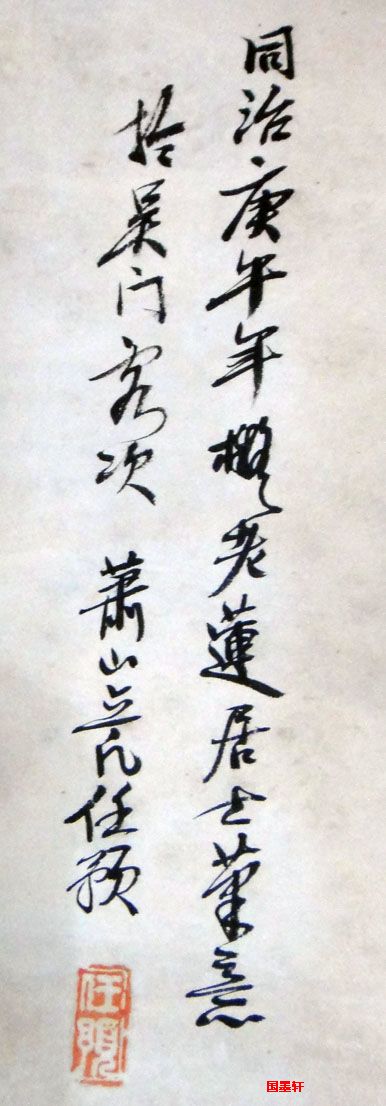 同治庚午年橅老蓮居士筆意
於吴门客次 蕭山立凡任頤
任頤
国墨轩